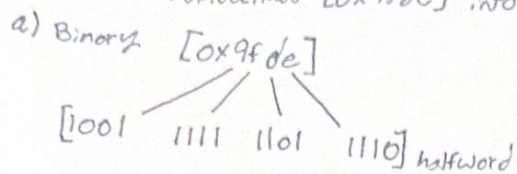 a) Binary [0x9fde]
[1001 1111 1101 1110] halfword